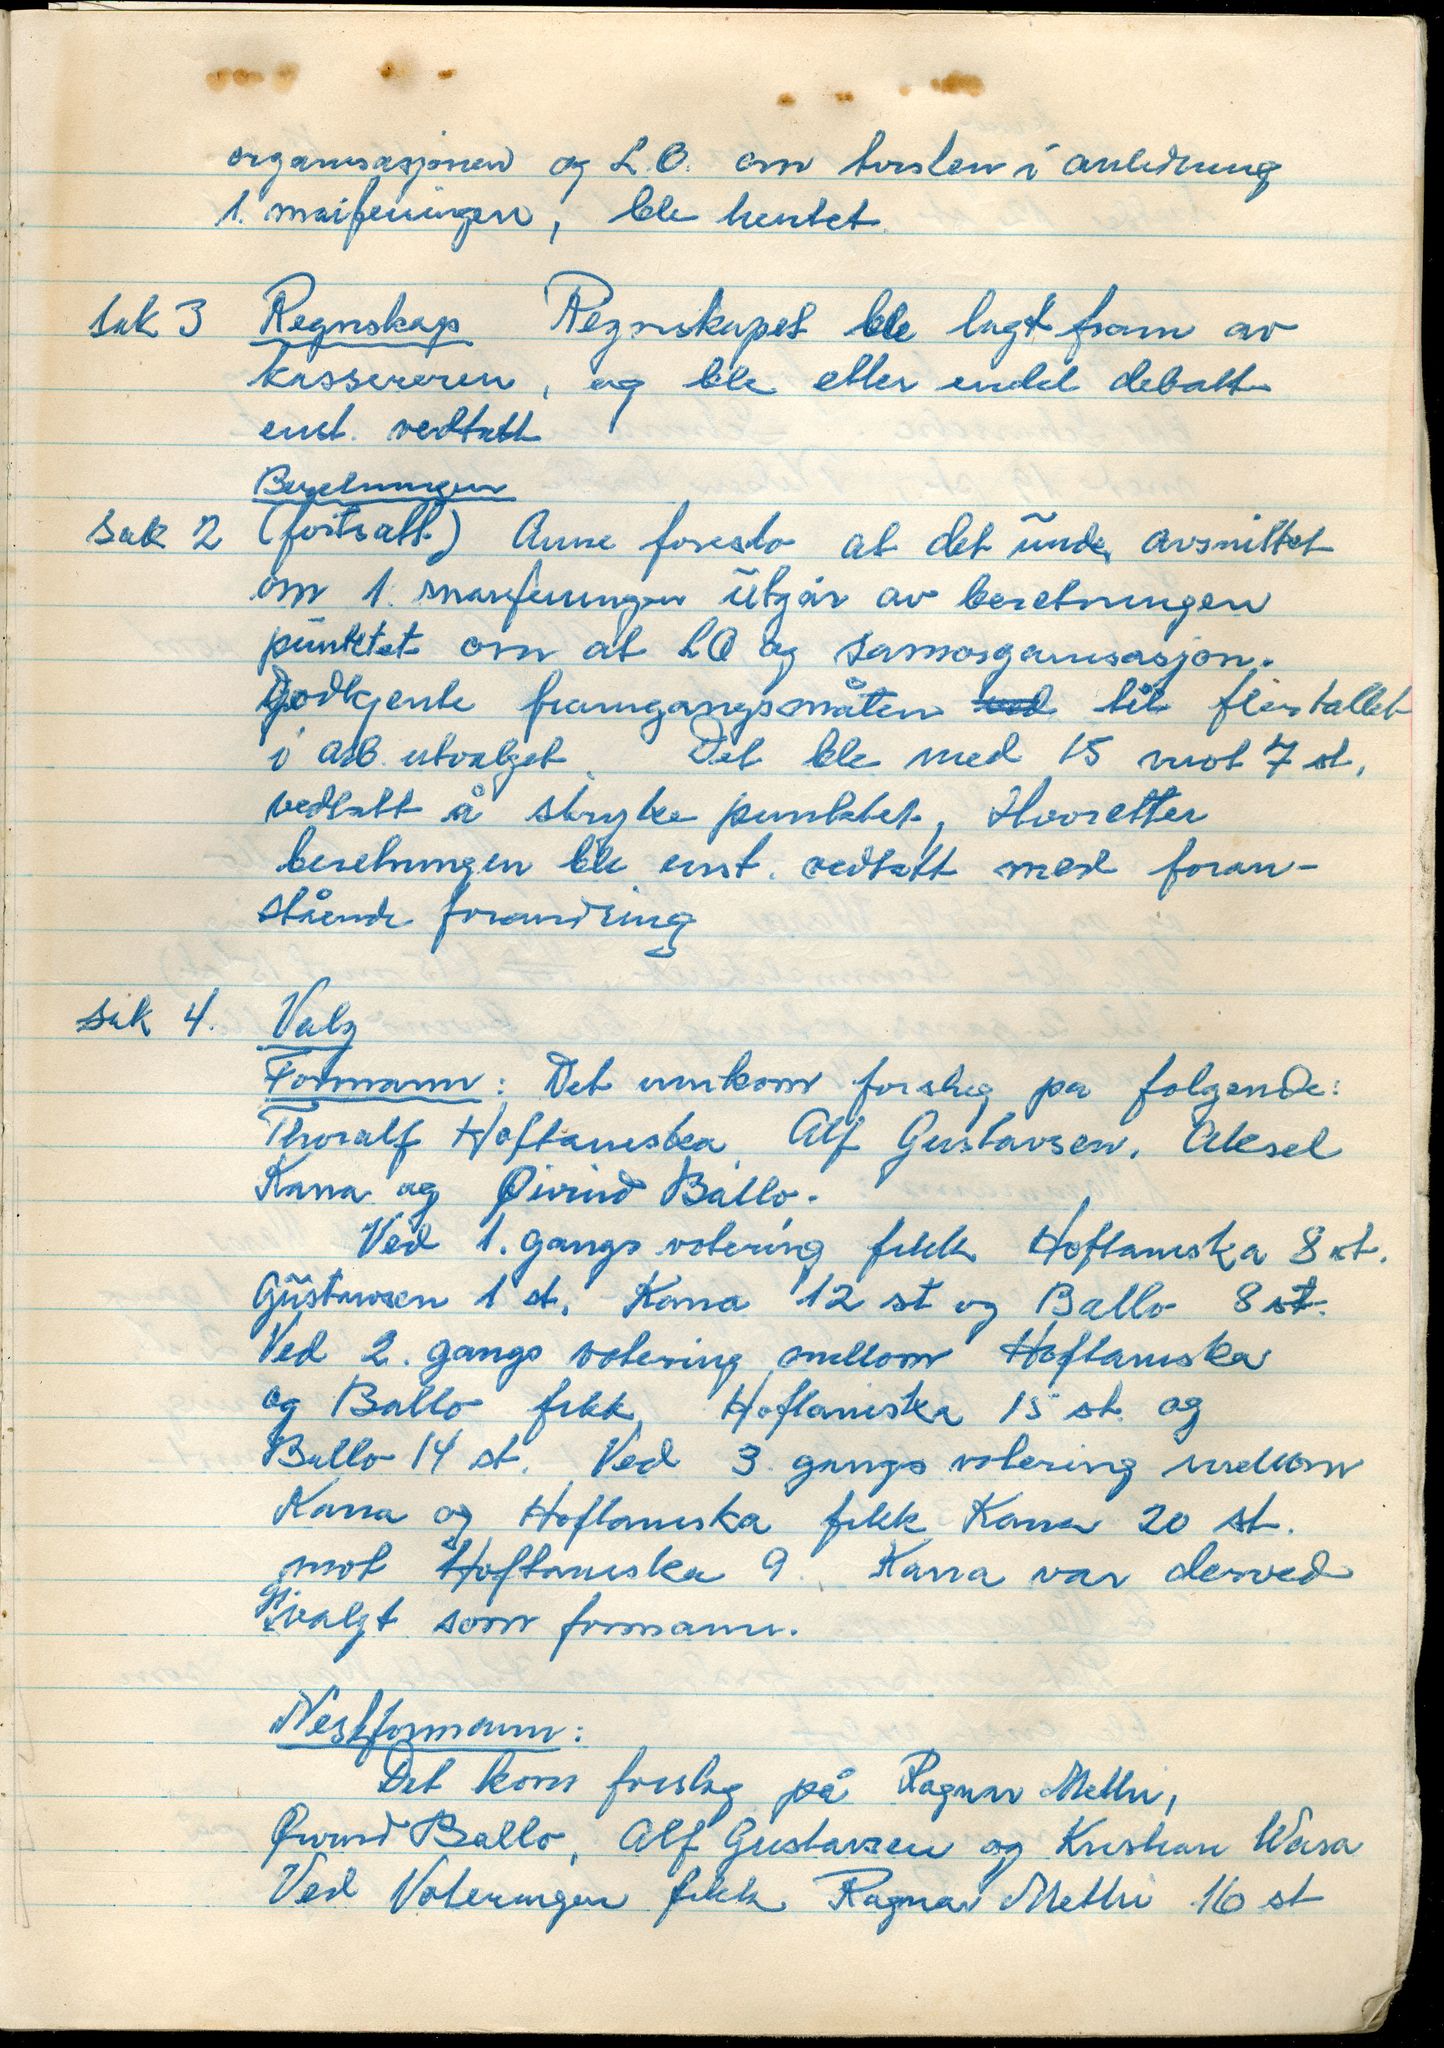 organisasjonen og L.O. om tvisten i anledning
1. maifeiringen, ble hentet.
sak 3 Regnskap Regnskapet ble lagt fram av
kassereren, og ble etter endel debatt
enst. vedtatt
Beretningen
sak 2 (fortsatt) Arne foreslo at det under avsnittet
om 1. maifeiringen utgår av beretningen
punktet om at LO og samorganisasjon.
Godkjente framgangsmåten ved til flertallet
i arb. utvalget. Det ble med 15 mot 7 st,
vedtatt å stryke punktet, Hvoretter
beretningen ble enst. vedtatt med foran-
stående forandring
sak 4. Valg
Formann: Det innkom forslag på folgende:
Thoralf Hoftaniska, Alf Gustavsen, Aksel
Karra og Øivind Ballo.
Ved 1. gangs votering fikk Hoftaniska 8 st.
Gustavsen 1 st, Karra 12 st og Ballo 8 st.
Ved 2. gangs votering mellom Hoftaniska
og Ballo fikk Hoftaniska 15 st. og
Ballo 14 st. Ved 3 gangs votering mellom
Karra og Hoftaniska fikk Karra 20 st.
mot Hoftaniska 9. Karra var derved
valgt som formann.
Nestformann:
Det kom forslag på Ragnar Methi,
Øivind Ballo, Alf Gustavsen og Kristian Wara
Ved Voteringen fikk Ragnar Methi 16 st